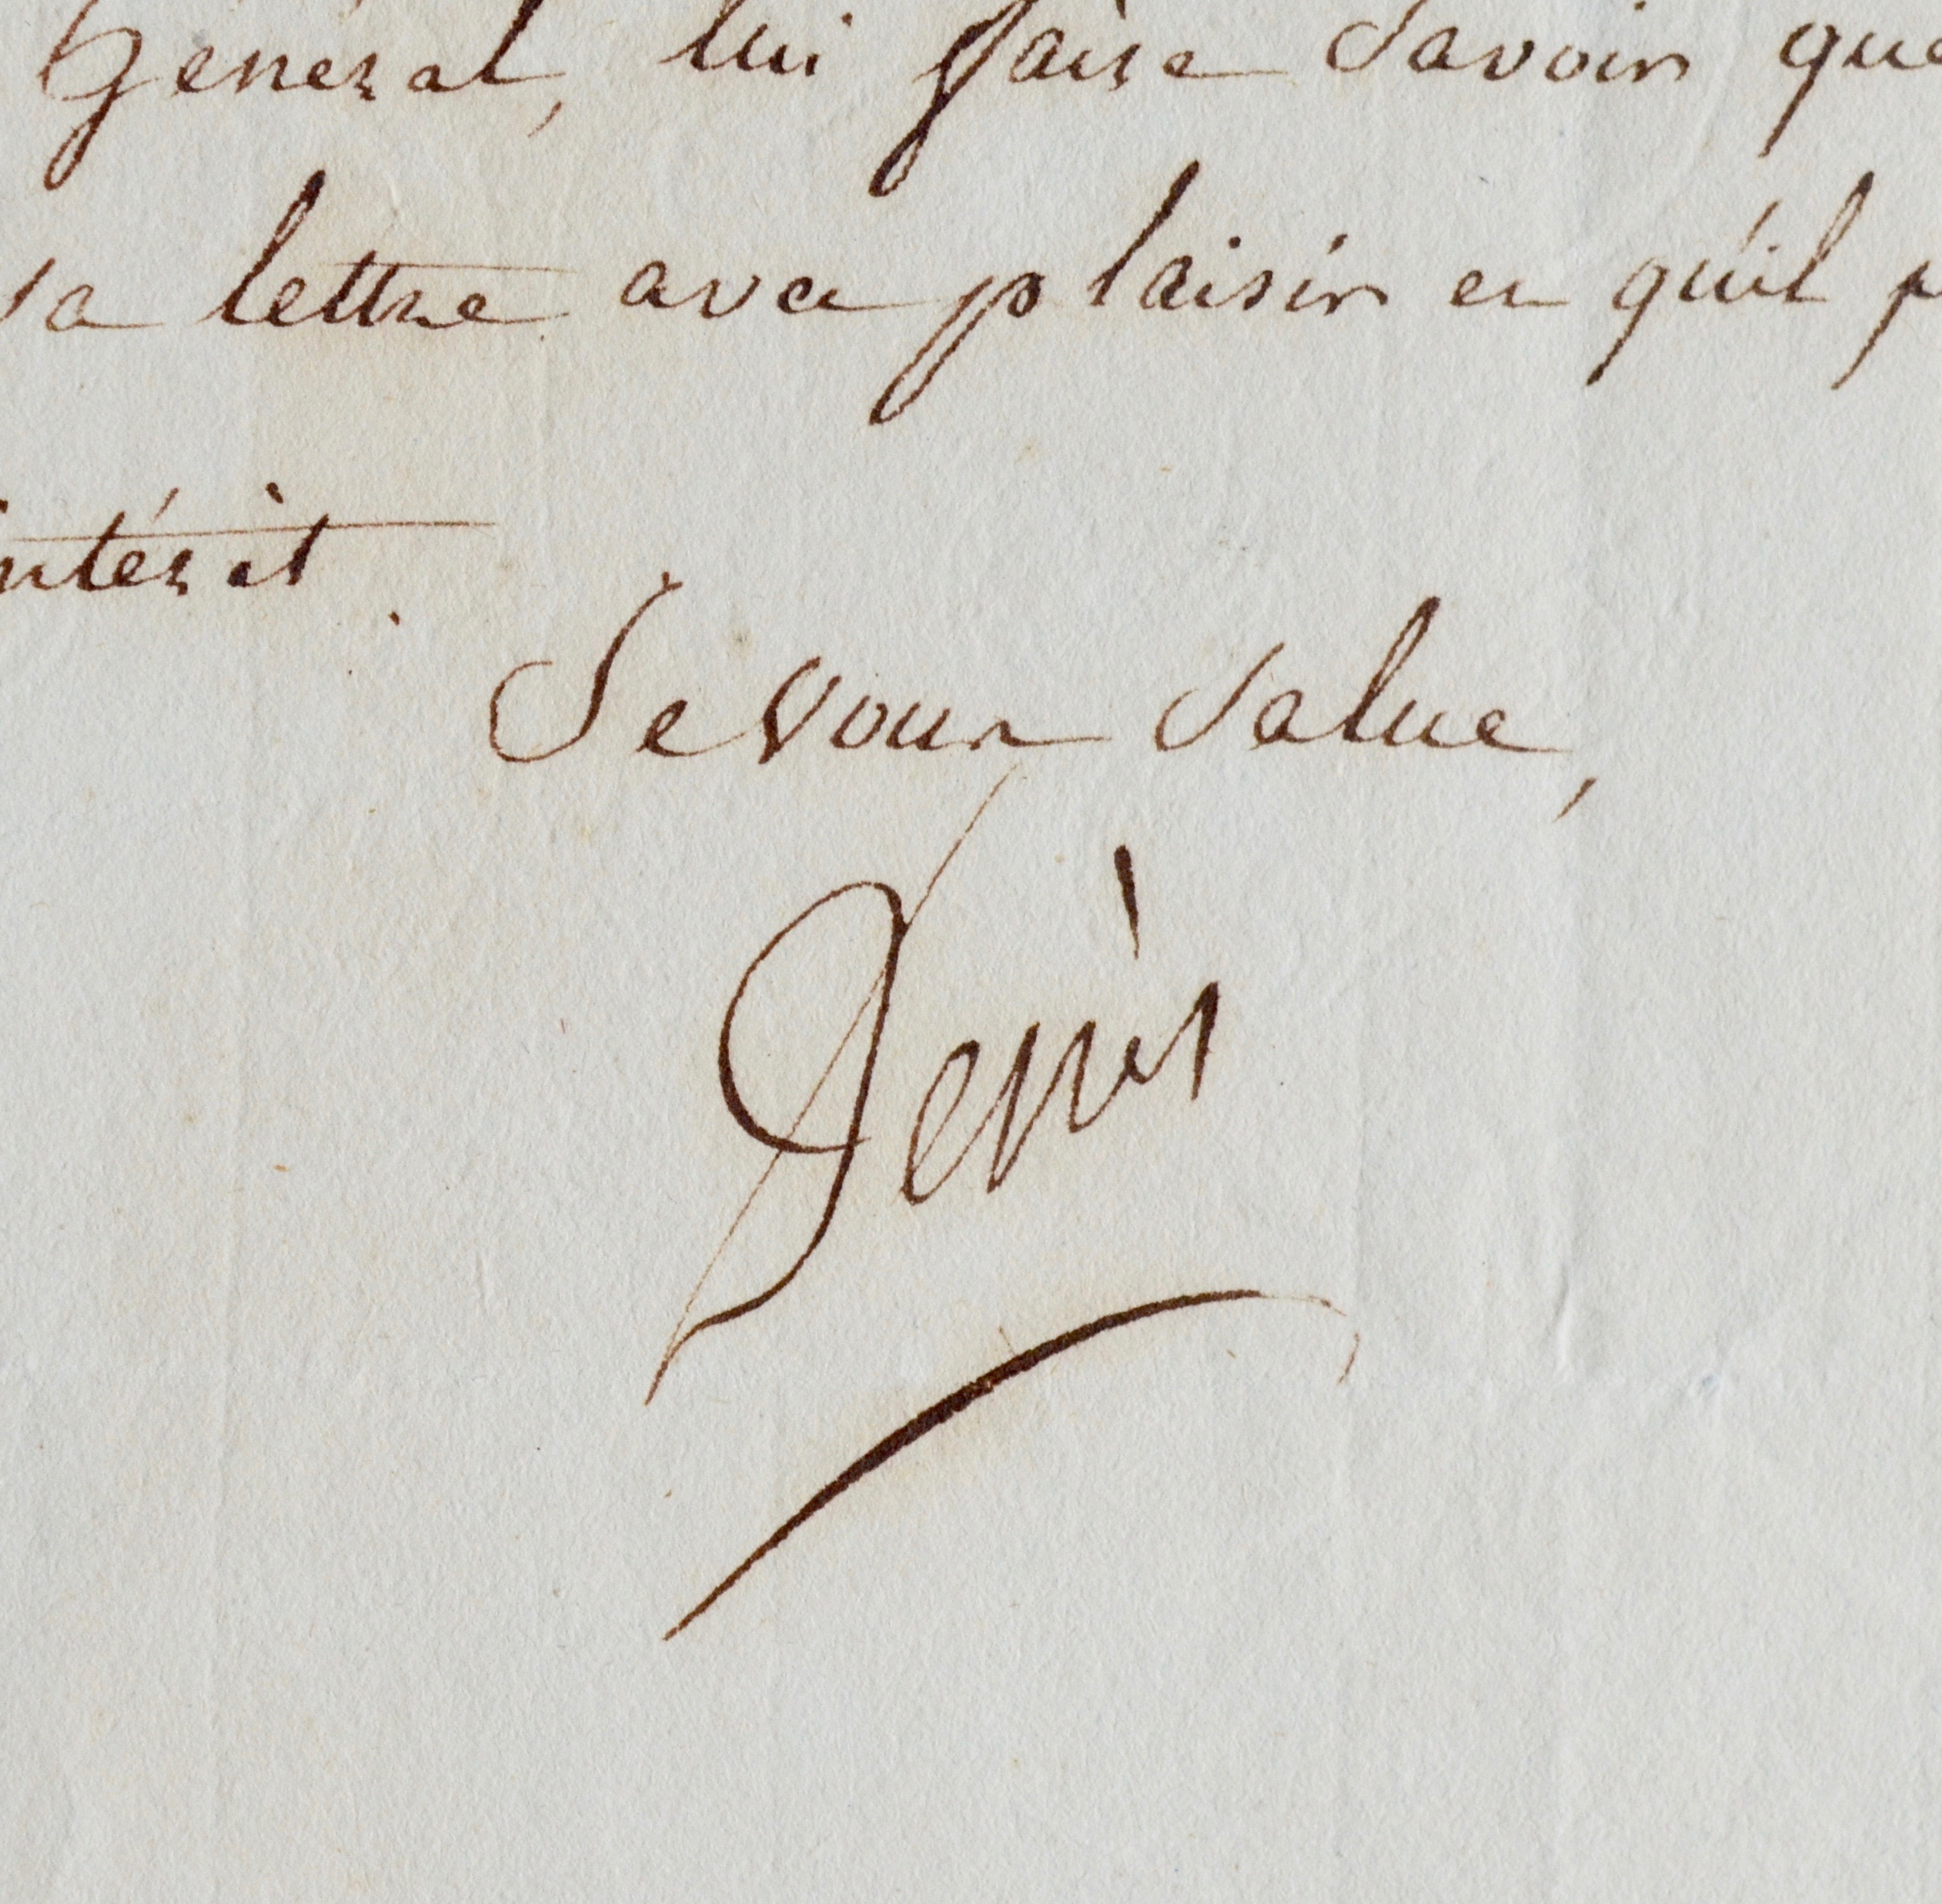 Général, lui faire savoir que
sa lettre avec plaisir et qu'il p
intérêt.
Je vous salue,
Denis